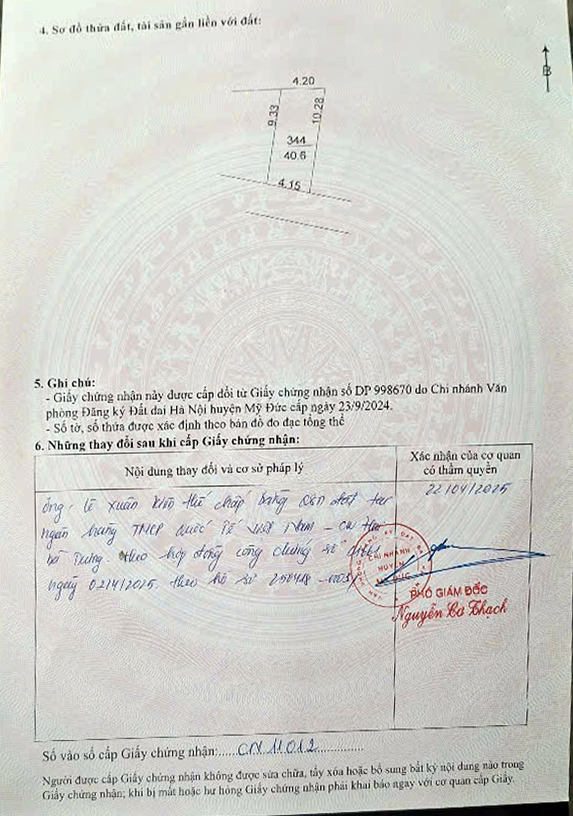 4. Sơ đồ thửa đất, tài sản gắn liền với đất:
B
4.20
9.33
10.28
344
40.6
4.15
5. Ghi chú:
- Giấy chứng nhận này được cấp đổi từ Giấy chứng nhận số DP 998670 do Chi nhánh Văn
phòng Đăng ký Đất đai Hà Nội huyện Mỹ Đức cấp ngày 23/9/2024.
- Số tờ, số thửa được xác định theo bản đồ đo đạc tổng thể
6. Những thay đổi sau khi cấp Giấy chứng nhận:
Nội dung thay đổi và cơ sở pháp lý
Xác nhận của cơ quan
có thẩm quyền
22/04/2025
ông: Lê Xuân thế chấp bằng QSD đất tại
ngân hàng TMCP Quốc Tế Việt Nam - CN
theo hợp đồng công chứng số
ngày 02/4/2025 theo hồ sơ 250418
CHI NHÁNH
HUYỆN
MỸ ĐỨC
PHÓ GIÁM ĐỐC
Nguyễn Bá Thạch
Số vào sổ cấp Giấy chứng nhận:.....CN 11012...............
Người được cấp Giấy chứng nhận không được sửa chữa, tẩy xóa hoặc bổ sung bất kỳ nội dung nào trong
Giấy chứng nhận; khi bị mất hoặc hư hỏng Giấy chứng nhận phải khai báo ngay với cơ quan cấp Giấy.